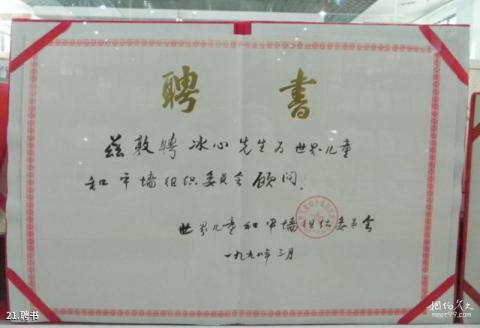 聘书
兹敦聘冰心先生为世界儿童
和平墙组织委员会顾问.
世界儿童和平墙组织委员会
一九九八年三月
21.聘书